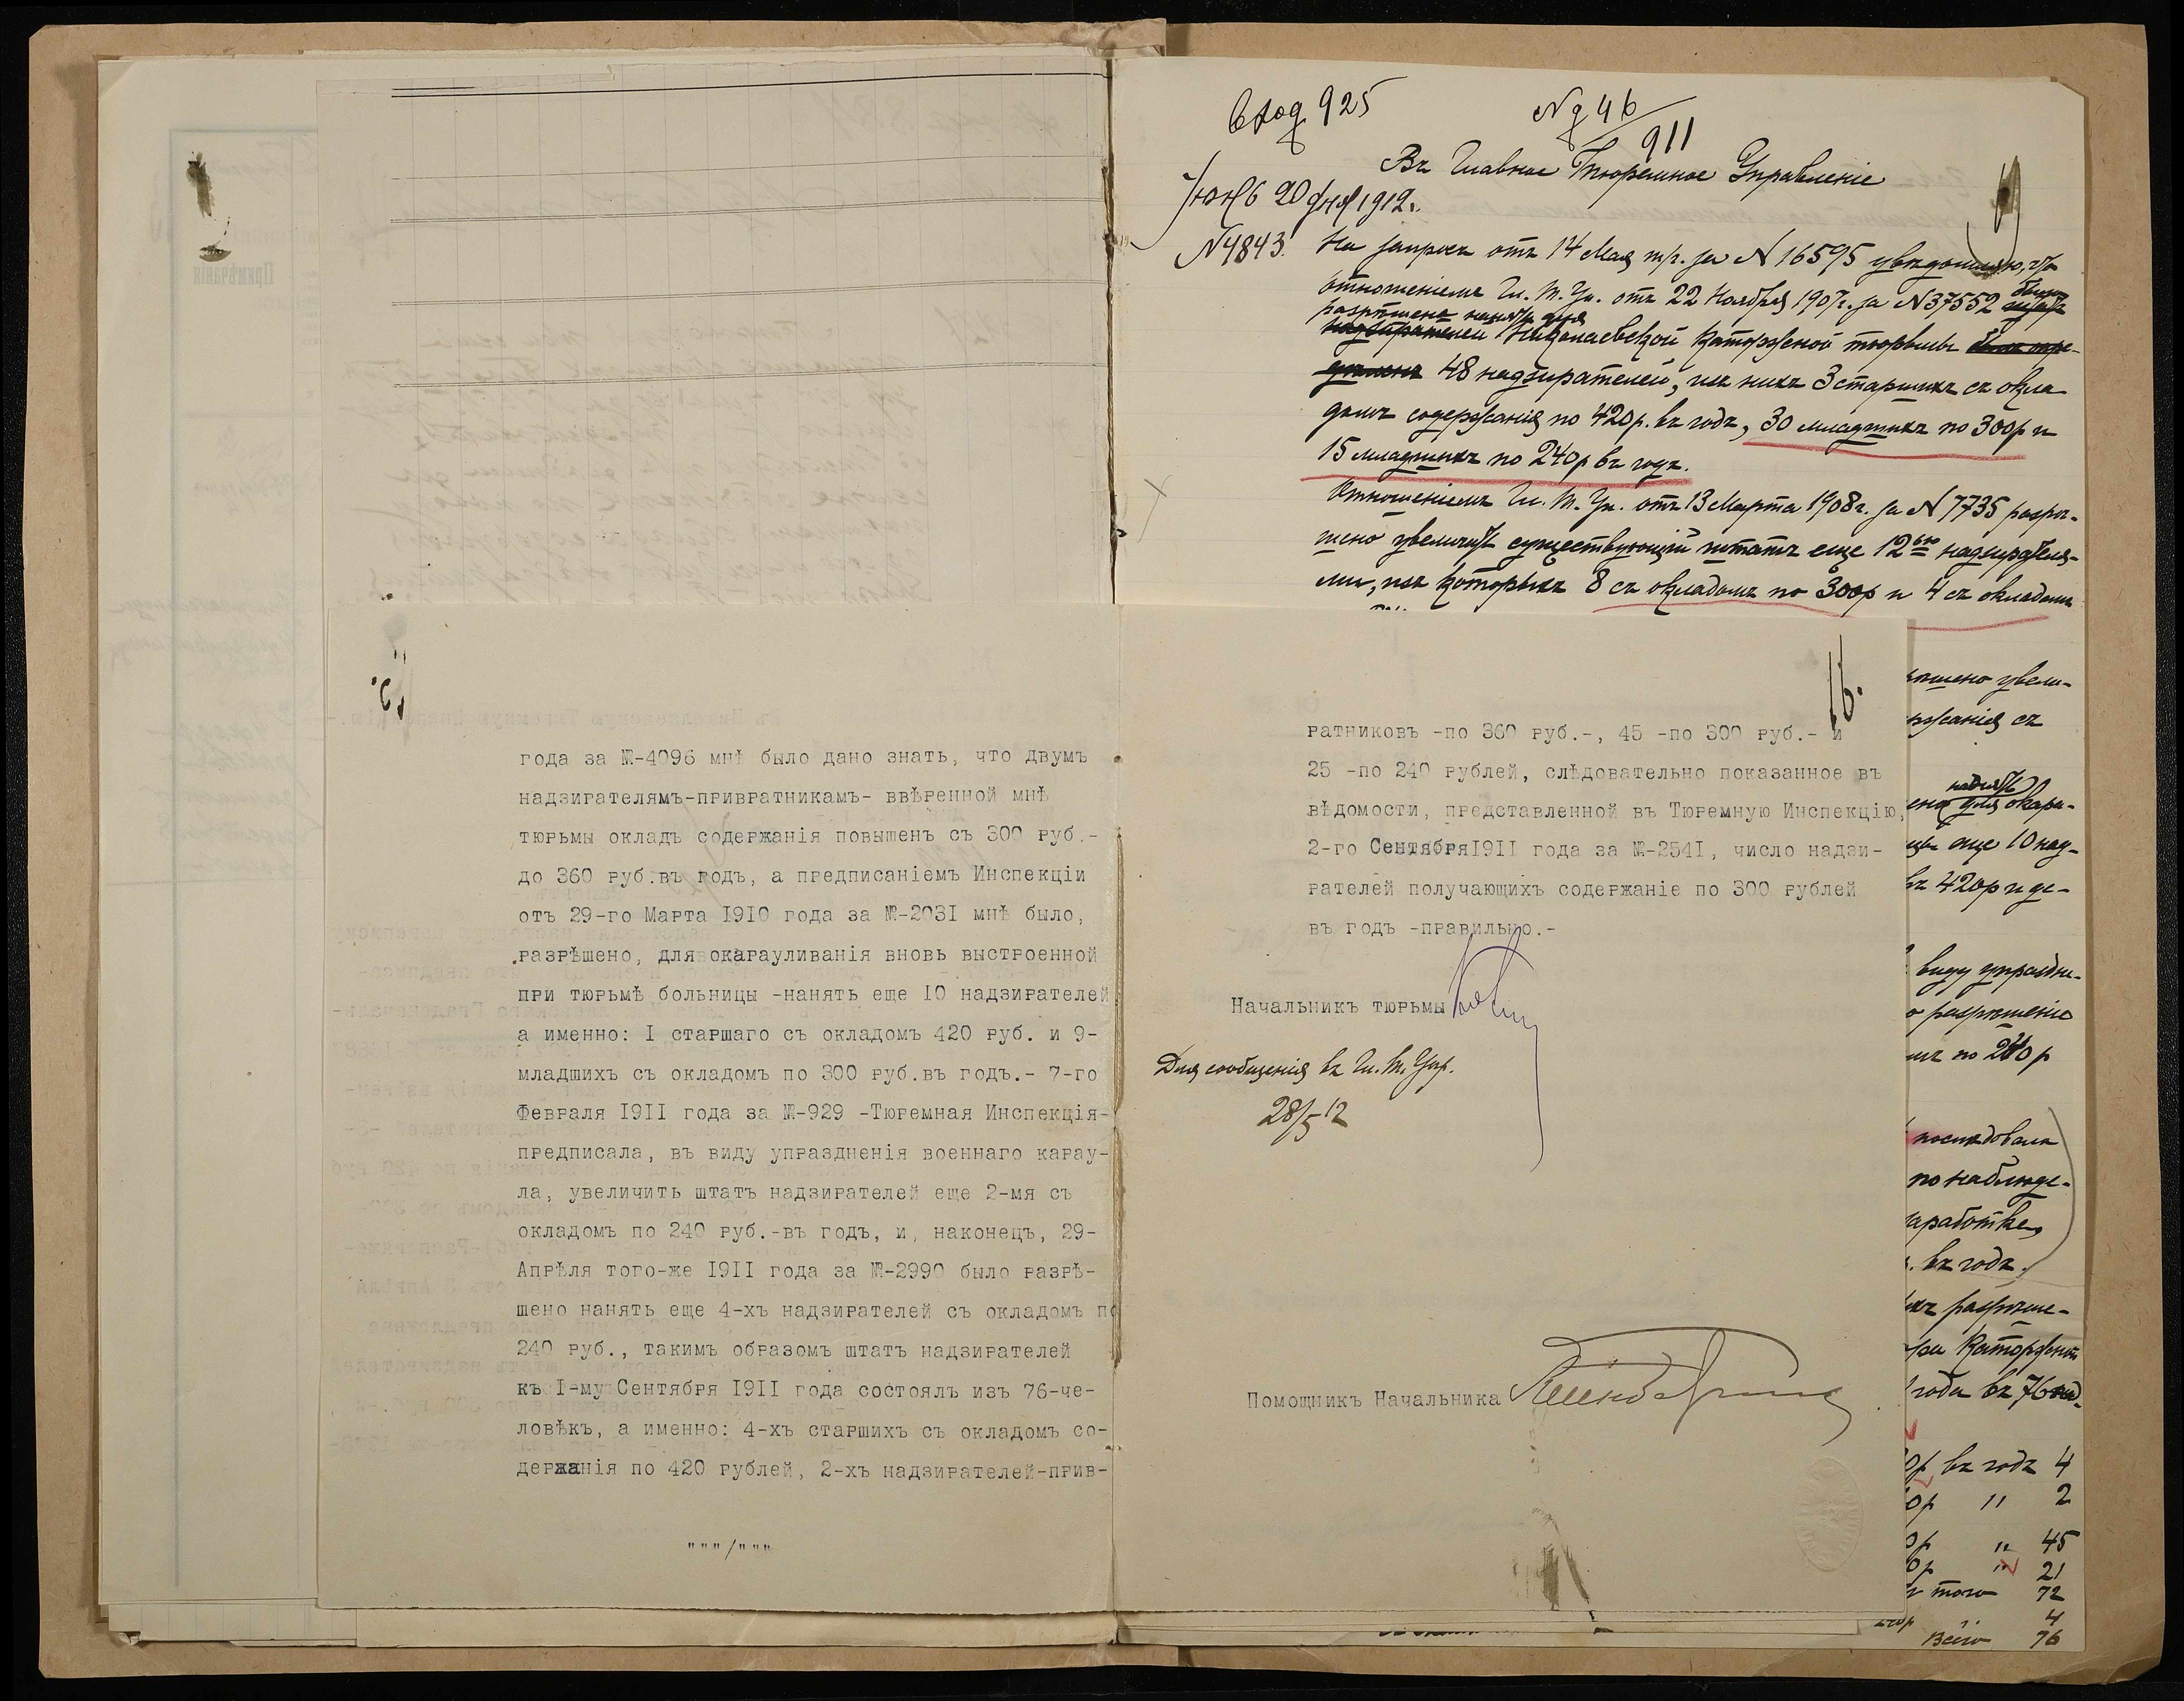 года за №-4096 мнѣ было дано знать, что двумъ
надзирателямъ-привратникамъ- ввѣренной мнѣ
тюрьмы окладъ содержанія повышенъ съ 300 руб.-
до 360 руб.въ годъ, а предписаніемъ Инспекціи
отъ 29-го Марта 1910 года за №-2031 мнѣ было,
разрѣшено, для окарауливанія вновь выстроенной
при тюрьмѣ больницы -нанять еще 10 надзирателей
а именно: I старшаго съ окладомъ 420 руб. и 9-
младшихъ съ окладомъ по 300 руб.въ годъ.- 7-го
Февраля 1911 года за №-929 -Тюремная Инспекція-
предписала, въ виду упраздненія военнаго карау-
ла, увеличить штатъ надзирателей еще 2-мя съ
окладомъ по 240 руб.-въ годъ, и, наконецъ, 29-
Апрѣля того-же 1911 года за №-2990 было разрѣ-
шено нанять еще 4-хъ надзирателей съ окладомъ по
240 руб., такимъ образомъ штатъ надзирателей
къ I-му Сентября 1911 года состоялъ изъ 76-че-
ловѣкъ, а именно: 4-хъ старшихъ съ окладомъ со-
держанія по 420 рублей, 2-хъ надзирателей-прив-
"""/"""
Вход 925
№ д 46/911
Въ Главное Тюремное Управленіе
20 1912г.
N4843.
На запросъ отъ 14 Мая т/г. за N 16595 увѣдомляю, что
отношеніемъ Гл. Т. Уп. отъ 22 Ноября 1907г. за N37552 было
разрѣшено нанять для
надзирателей Николаевской Каторжной тюрьмы было опре-
дѣлено 48 надзирателей, изъ нихъ 3 старшихъ съ окла
домъ содержанія по 420р. въ годъ, 30 младшихъ по 300р и
15 младшихъ по 240р въ годъ.
Отношеніемъ Гл. Т. Уп. отъ 13 Марта 1908г. за N 7735 разрѣ-
шено увеличить существующій штатъ еще 12ью надзирателя-
ми, изъ которыхъ 8 съ окладомъ по 300р и 4 съ окладомъ
16.
ратниковъ -по 360 руб.-, 45 -по 300 руб.- и
25 -по 240 рублей, слѣдовательно показанное въ
вѣдомости, представленной въ Тюремную Инспекцію,
2-го Сентября1911 года за №-2541, число надзи-
рателей получающихъ содержаніе по 300 рублей
въ годъ -правильно.-
Начальникъ тюрьмы
Для сообщенія въ Гл. Т. Упр.
28/5 12
Помощникъ Начальника
шено увели-
жанія съ
нанять
для окара-
еще 10 над-
въ 420р и де-
виду упраздне-
разрѣшеніе
по 240р
послѣдовала
по наблюде-
заработке,
въ годъ.
разрѣше-
Каторжной
года въ 76 над-
въ годъ 4
0р " 2
0р " 45
0р " 21
того 72
4
Всего 76